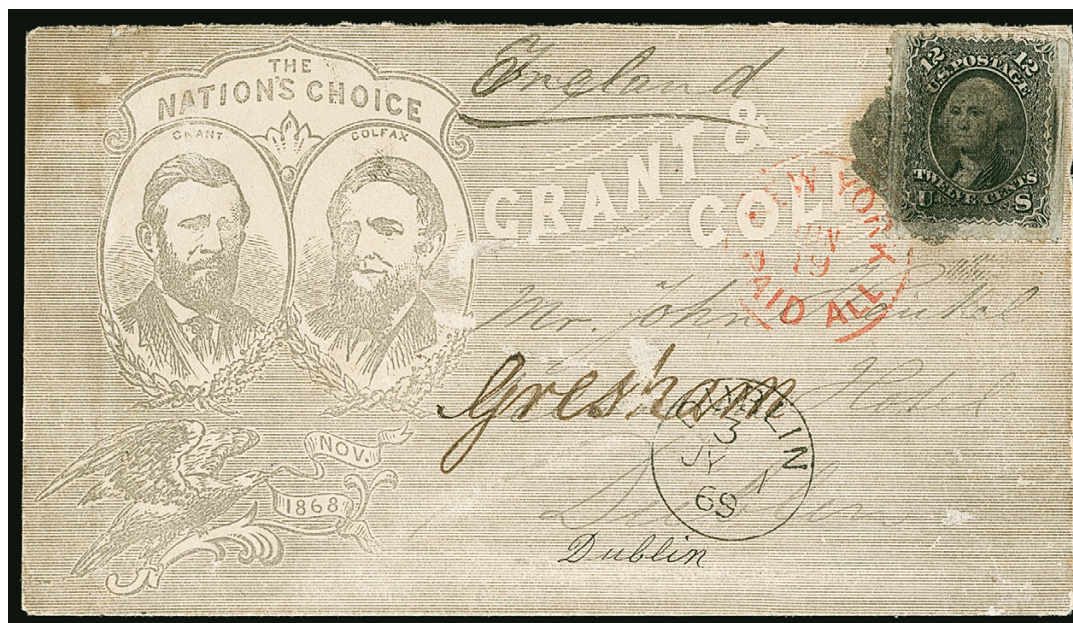 THE
NATION'S CHOICE
GRANT
COLFAX
NOV.
1868
Ireland
GRANT &
COL
12 12
U.S. POSTAGE
TWELVE CENTS
U S
NEW YORK
JUN
19
PAID ALL
Mr. John
Gresham Hotel
Dublin
DUBLIN
3
JY
Dublin